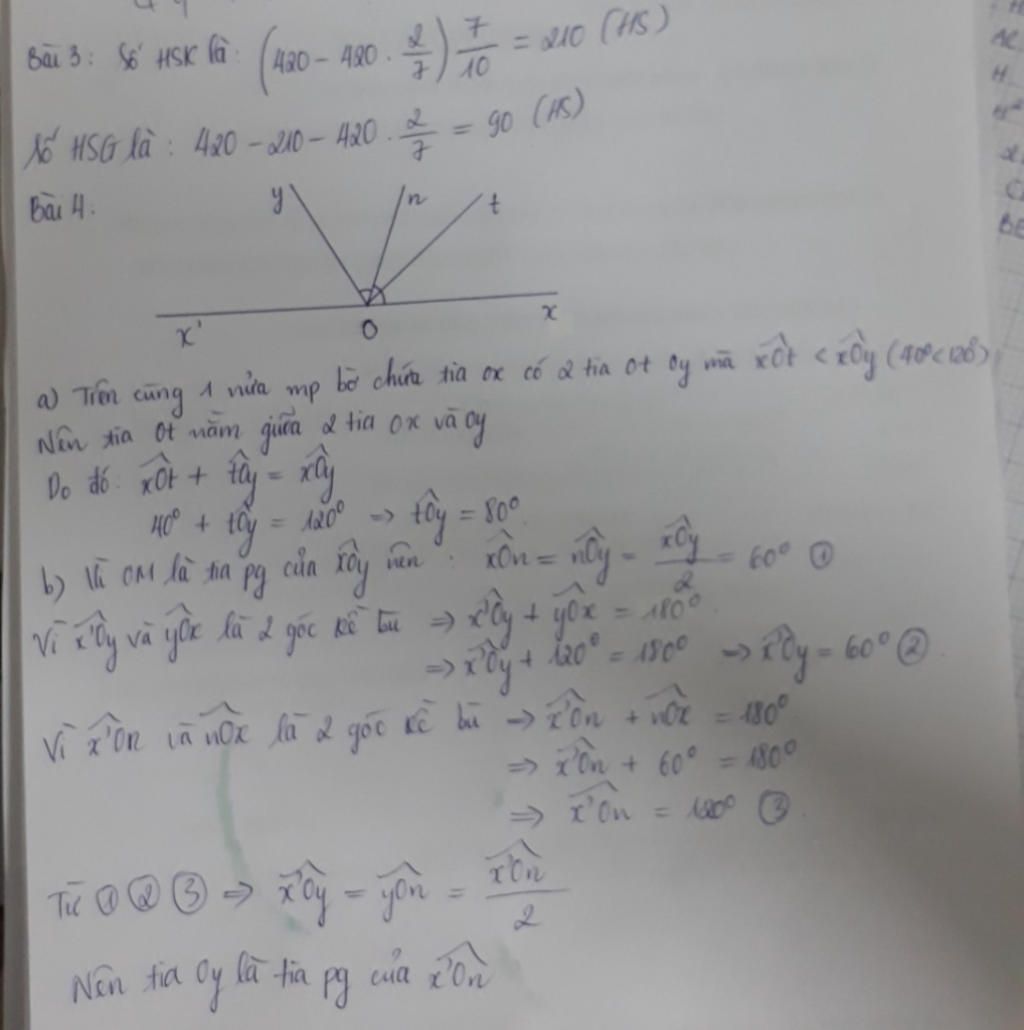 Bài 3: Số HSK là: (420 - 420 . 2/7) 7/10 = 210 (HS)
Số HSG là: 420 - 210 - 420 . 2/7 = 90 (HS)
Bài 4:
y n t
x' O x
a) Trên cùng 1 nửa mp bờ chứa tia ox có 2 tia ot oy mà xÔt < xÔy (40° < 120°)
Nên tia ot nằm giữa 2 tia ox và oy
Do đó: xÔt + tÔy = xÔy
40° + tÔy = 120° => tÔy = 80°
b) Vì OM là tia pg của xÔy nên: xÔn = nÔy = xÔy/2 = 60° ①
Vì x'Ôy và yÔx là 2 góc kề bù => x'Ôy + yÔx = 180°
=> x'Ôy + 120° = 180° => x'Ôy = 60° ②
Vì x'Ôn và nÔx là 2 góc kề bù => x'Ôn + nÔx = 180°
=> x'Ôn + 60° = 180°
=> x'Ôn = 120° ③
Từ ① ② ③ => x'Ôy = yÔn = x'Ôn/2
Nên tia oy là tia pg của x'Ôn